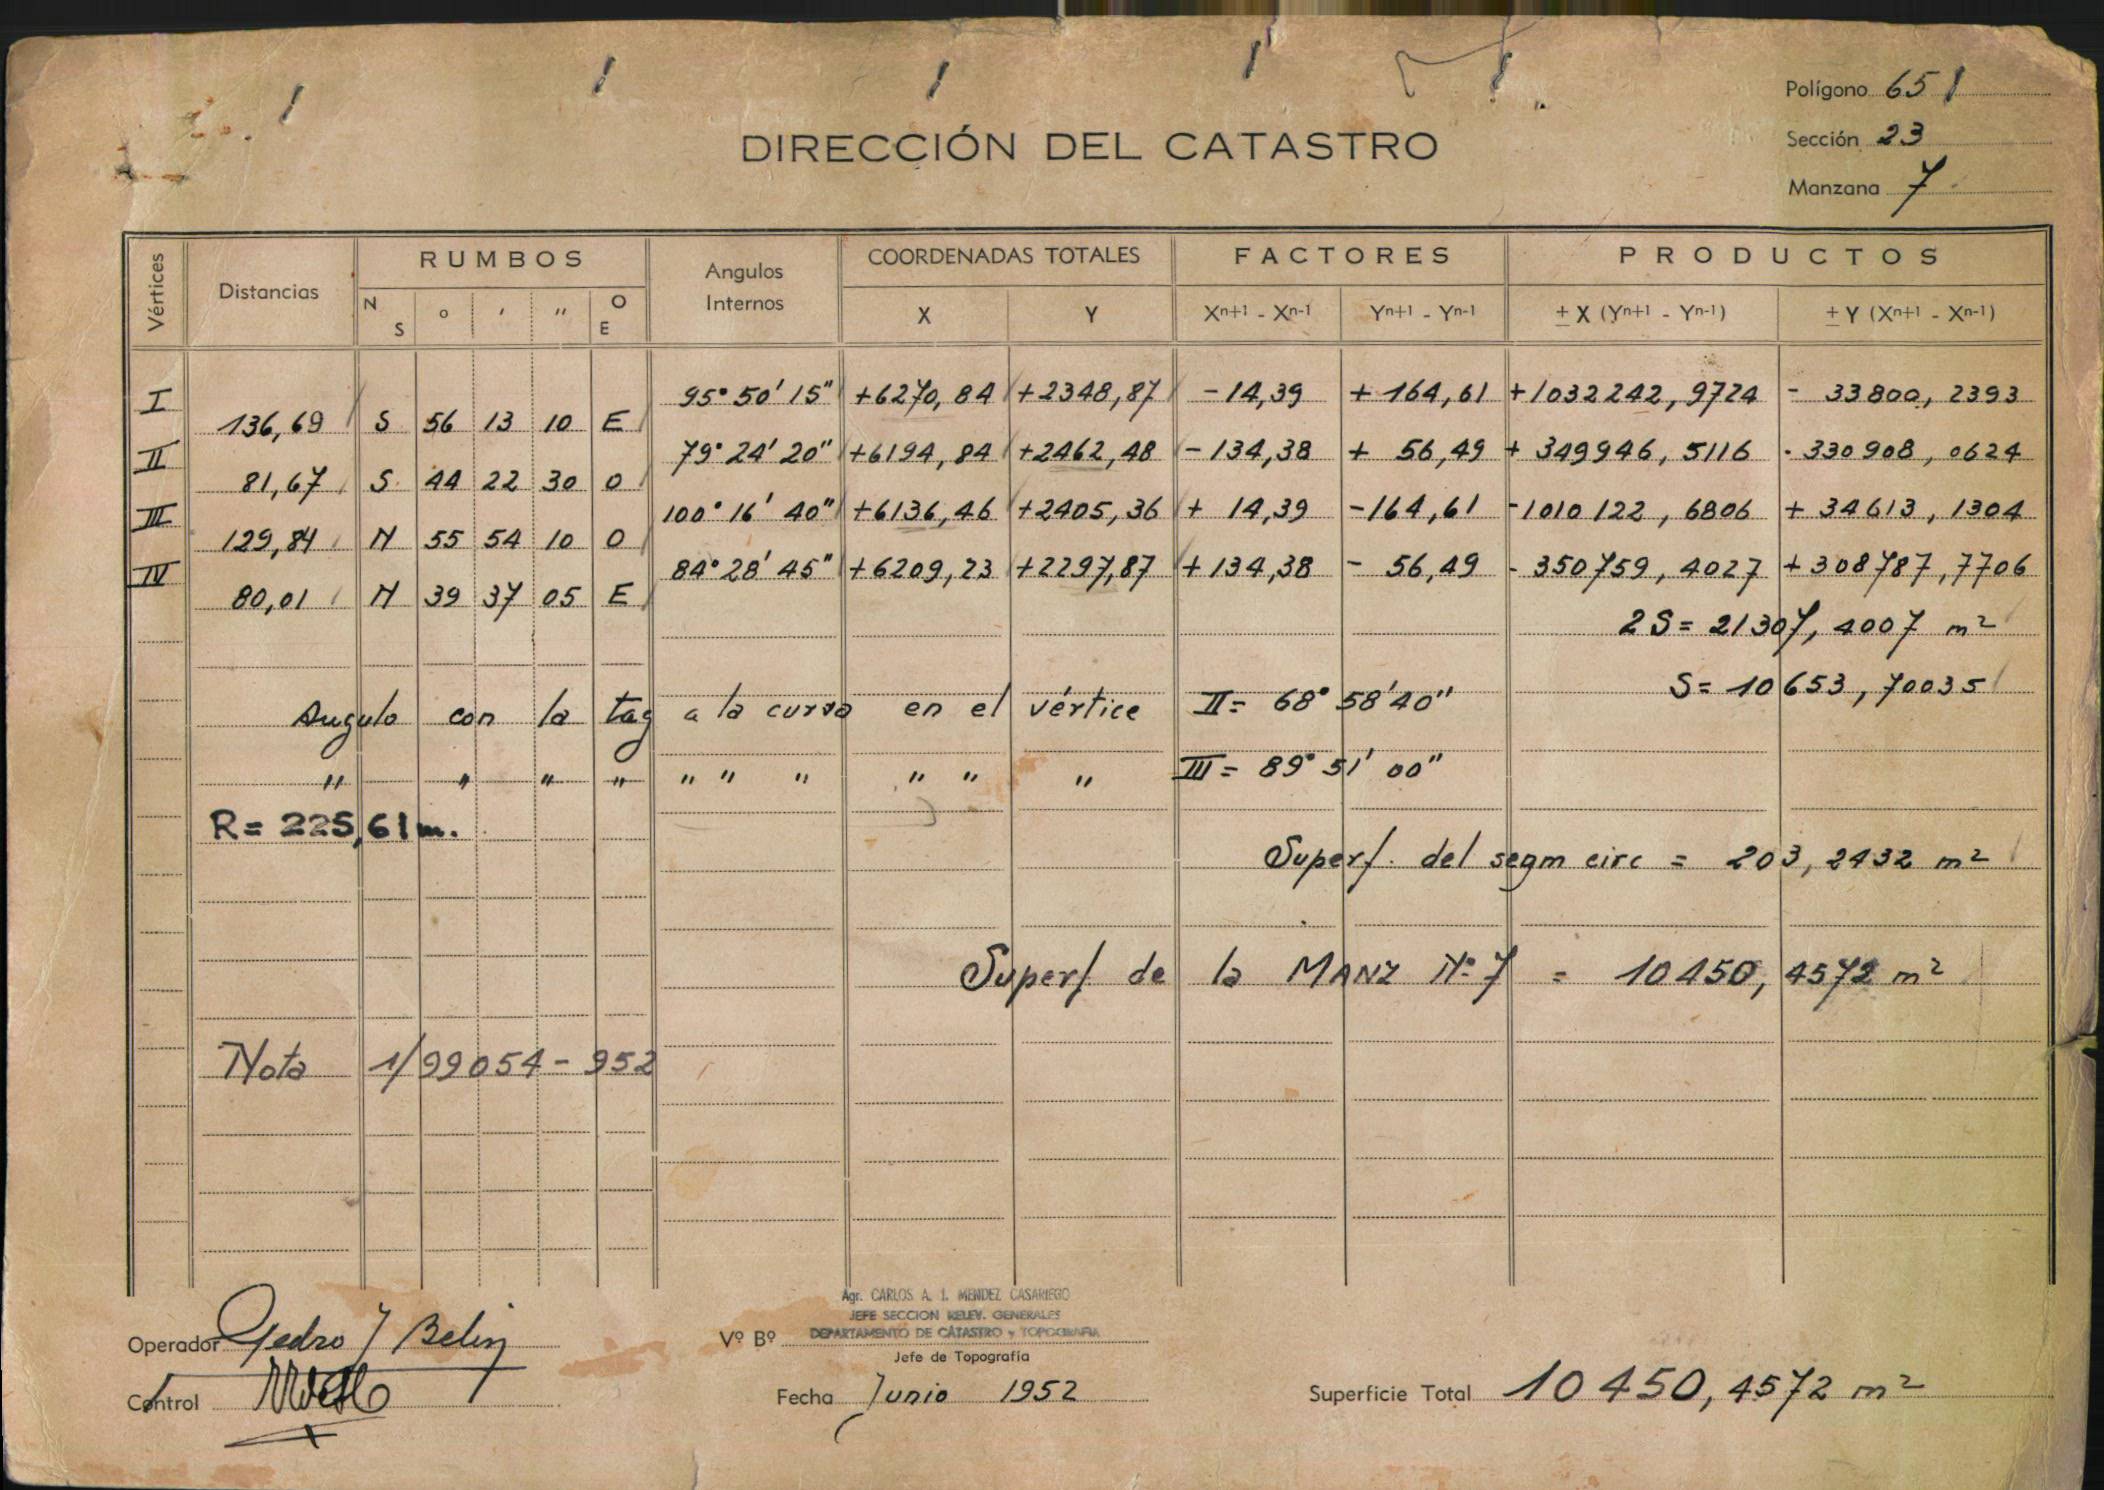 Polígono 651
DIRECCIÓN DEL CATASTRO
Sección 23
Manzana 7
Vértices Distancias RUMBOS Angulos Internos COORDENADAS TOTALES FACTORES PRODUCTOS
N S ° ' '' O E X Y Xn+1 - Xn-1 Yn+1 - Yn-1 ± X (Yn+1 - Yn-1) ± Y (Xn+1 - Xn-1)
I 95° 50' 15" +6270,84 +2348,87 -14,39 + 164,61 +1032242,9724 - 33800,2393
136,69 S 56 13 10 E
II 79° 24' 20" +6194,84 +2462,48 -134,38 + 56,49 + 349946,5116 - 330908,0624
81,67 S 44 22 30 O
III 100° 16' 40" +6136,46 +2405,36 + 14,39 -164,61 -1010122,6806 + 34613,1304
129,84 N 55 54 10 O
IV 84° 28' 45" +6209,23 +2297,87 + 134,38 - 56,49 - 350759,4027 + 308787,7706
80,01 N 39 37 05 E
2S = 21307,4007 m²
S = 10653,70035
Angulo con la tag a la curva en el vértice II = 68° 58' 40"
" " " " " " " " " " III = 89° 51' 00"
R = 225,61 m.
Superf. del segm circ = 203,2432 m²
Superf de la MANZ Nº 7 = 10450,4572 m²
Nota 1/99054 - 952
Agr. CARLOS A. I. MENDEZ CASARIEGO
JEFE SECCION RELEV. GENERALES
DEPARTAMENTO DE CATASTRO y TOPOGRAFIA
Operador Pedro J Belin
Vº Bº
Jefe de Topografía
Control
Fecha Junio 1952
Superficie Total 10450,4572 m²